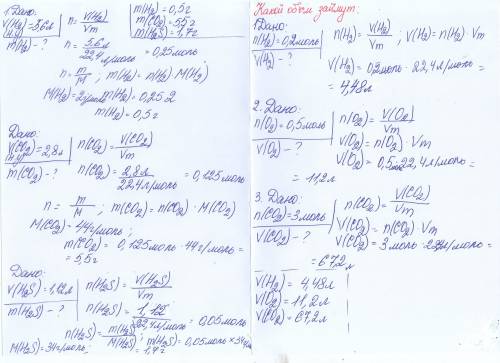 1. Дано:
V(H2)=5,6л
(н.у)
m(H2) - ?
n = V(H2)/Vm
n = 5,6л/22,4л/моль = 0,25моль
n = m/M ; m(H2) = n(H2)·M(H2)
M(H2) = 2г/моль m(H2) = 0,25·2
m(H2) = 0,5г
m(H2) = 0,5г
m(CO2) = 5,5г
m(H2S) = 1,7г
Дано:
V(CO2) = 2,8л
(н.у)
m(CO2) - ?
n(CO2) = V(CO2)/Vm
n(CO2) = 2,8л/22,4л/моль = 0,125моль
n = m/M ; m(CO2) = n(CO2)·M(CO2)
M(CO2) = 44г/моль ;
m(CO2) = 0,125моль·44г/моль =
= 5,5г
Дано:
V(H2S) = 1,12л
m(H2S) - ?
n(H2S) = V(H2S)/Vm
n(H2S) = 1,12/22,4л/моль = 0,05моль
n(H2S) = m(H2S)/M(H2S) ; m(H2S) = 0,05моль·34г/
M(H2S) = 34г/моль. = 1,7г
Какой объем займут:
1 Дано:
n(H2) = 0,2моль
V(H2) - ?
n(H2) = V(H2)/Vm ; V(H2) = n(H2)·Vm
V(H2) = 0,2моль·22,4л/моль =
= 4,48л
2. Дано:
n(O2) = 0,5моль
V(O2) - ?
n(O2) = V(O2)/Vm
V(O2) = n(O2)·Vm
V(O2) = 0,5моль·22,4л/моль =
= 11,2л
3. Дано:
n(CO2) = 3моль
V(CO2) - ?
n(CO2) = V(CO2)/Vm
V(CO2) = n(CO2)·Vm
V(CO2) = 3моль·22,4л/моль =
= 67,2л
V(H2) = 4,48л
V(O2) = 11,2л
V(CO2) = 67,2л